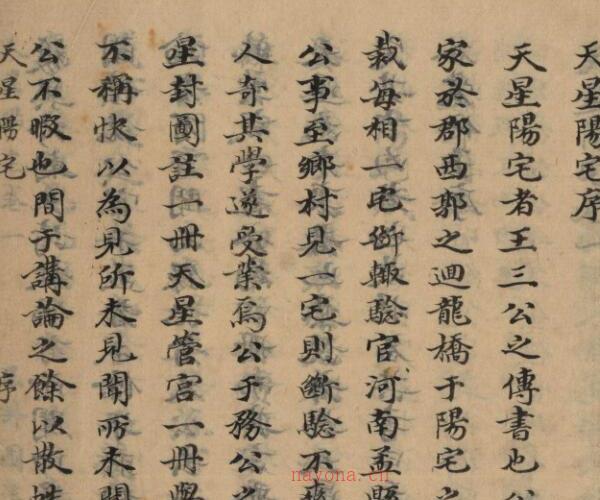 天星陽宅序
天星陽宅者王三公之傳書也
家於郡西郭之迴龍橋于陽宅之
裁每相一宅斷輙驗官河南孟縣
公事至鄉村見一宅則斷驗不
人奇其學遂受業焉公于務公之
星封圖註一冊天星管宮一冊學
不稱快以為見所未見聞所未聞
公不暇也間于講論之餘以散
天星陽宅 序
nayona.cn